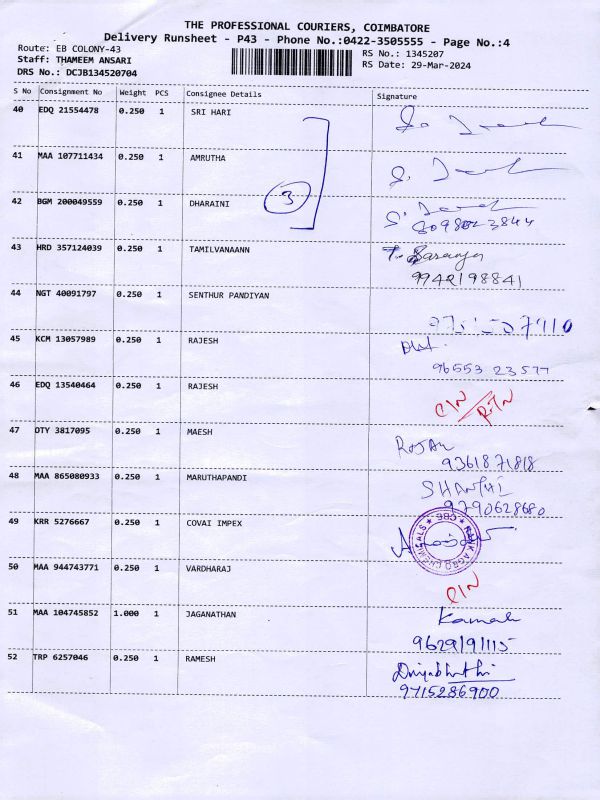 THE PROFESSIONAL COURIERS, COIMBATORE
Delivery Runsheet - P43 - Phone No.:0422-3505555 - Page No.:4
Route: EB COLONY-43
Staff: THAMEEM ANSARI
DRS No.: DCJB134520704
RS No.: 1345207
RS Date: 29-Mar-2024
S No Consignment No Weight PCS Consignee Details Signature
40 EDQ 21554478 0.250 1 SRI HARI
41 MAA 107711434 0.250 1 AMRUTHA
42 BGM 200049559 0.250 1 DHARAINI
3
8098023844
43 HRD 357124039 0.250 1 TAMILVANAANN
9942198841
44 NGT 40091797 0.250 1 SENTHUR PANDIYAN
45 KCM 13057989 0.250 1 RAJESH
96553 23577
46 EDQ 13540464 0.250 1 RAJESH
CIN/RTN
47 DTY 3817095 0.250 1 MAESH
ROJAN
9361871818
48 MAA 865080933 0.250 1 MARUTHAPANDI
SHANTHI
9790628680
49 KRR 5276667 0.250 1 COVAI IMPEX
AGRO CHEMICALS ★ CBE ★
50 MAA 944743771 0.250 1 VARDHARAJ
CIN
51 MAA 104745852 1.000 1 JAGANATHAN
Kamali
9629191115
52 TRP 6257046 0.250 1 RAMESH
Divyabharathi
9715286900